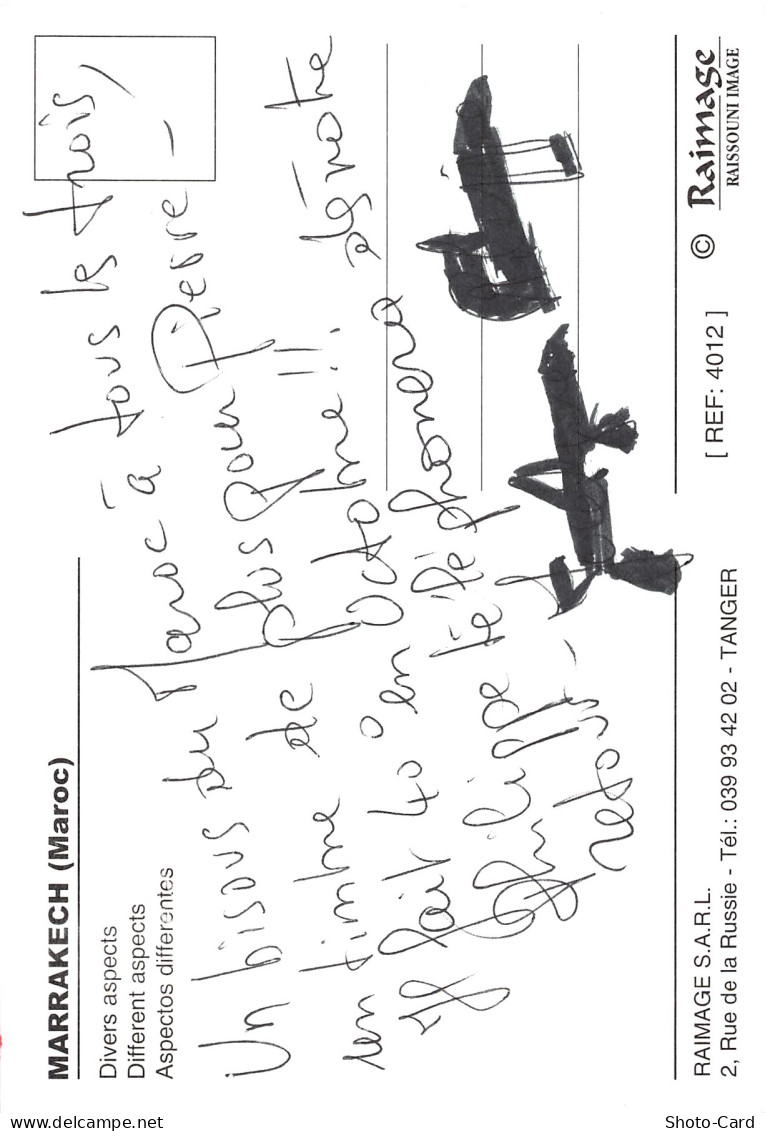 MARRAKECH (Maroc)
Divers aspects
Different aspects
Aspectos differentes
Un bisous du Maroc à tous les trois,
un timbre de plus pour Pierre -
Il fait 40° en Octobre !!! à notre
Philippe téléphonera
retour -
RAIMAGE S.A.R.L.
2, Rue de la Russie - Tél.: 039 93 42 02 - TANGER
[ REF: 4012 ]
© Raimage
RAISSOUNI IMAGE
www.delcampe.net
Shoto-Card